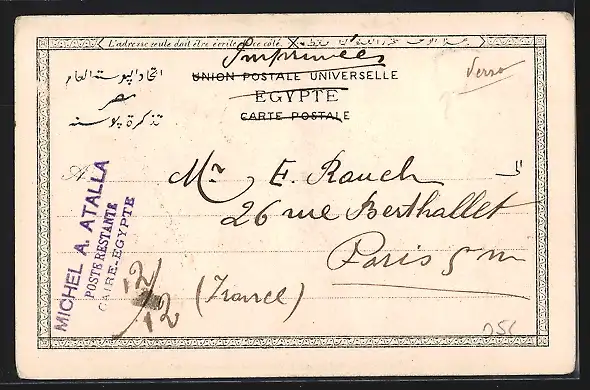 L'adresse seule doit être écrite de ce côté.
Imprimées
Verso
UNION POSTALE UNIVERSELLE
EGYPTE
CARTE POSTALE
اتحاد البوستة العام
مصر
تذكرة بوسته
A
الى
Mr E. Rauch
26 rue Berthallet
Paris
(France)
MICHEL A. ATALLA
POSTE RESTANTE
CAIRE-EGYPTE
12/12